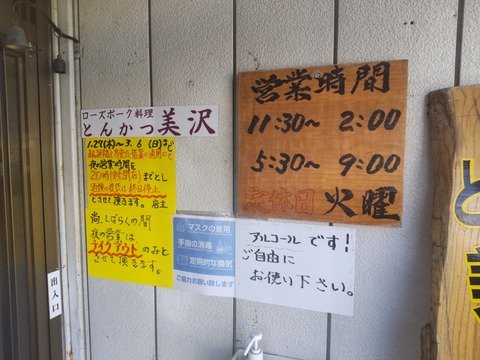 ローズポーク料理
とんかつ美沢
1.27(木)〜3.6(日)まで
夜の営業時間を
20時(全閉店)までとし
酒類の提供は終日停止
とさせて頂きます。店主
尚、しばらくの間
夜の営業は
テイクアウトのみと
させて頂きます。
営業時間
11:30〜2:00
5:30〜9:00
定休日 火曜
マスクの着用
手指の消毒
定期的な換気
ご協力お願い致します
アルコールです!
ご自由に
お使い下さい。
出入口
と